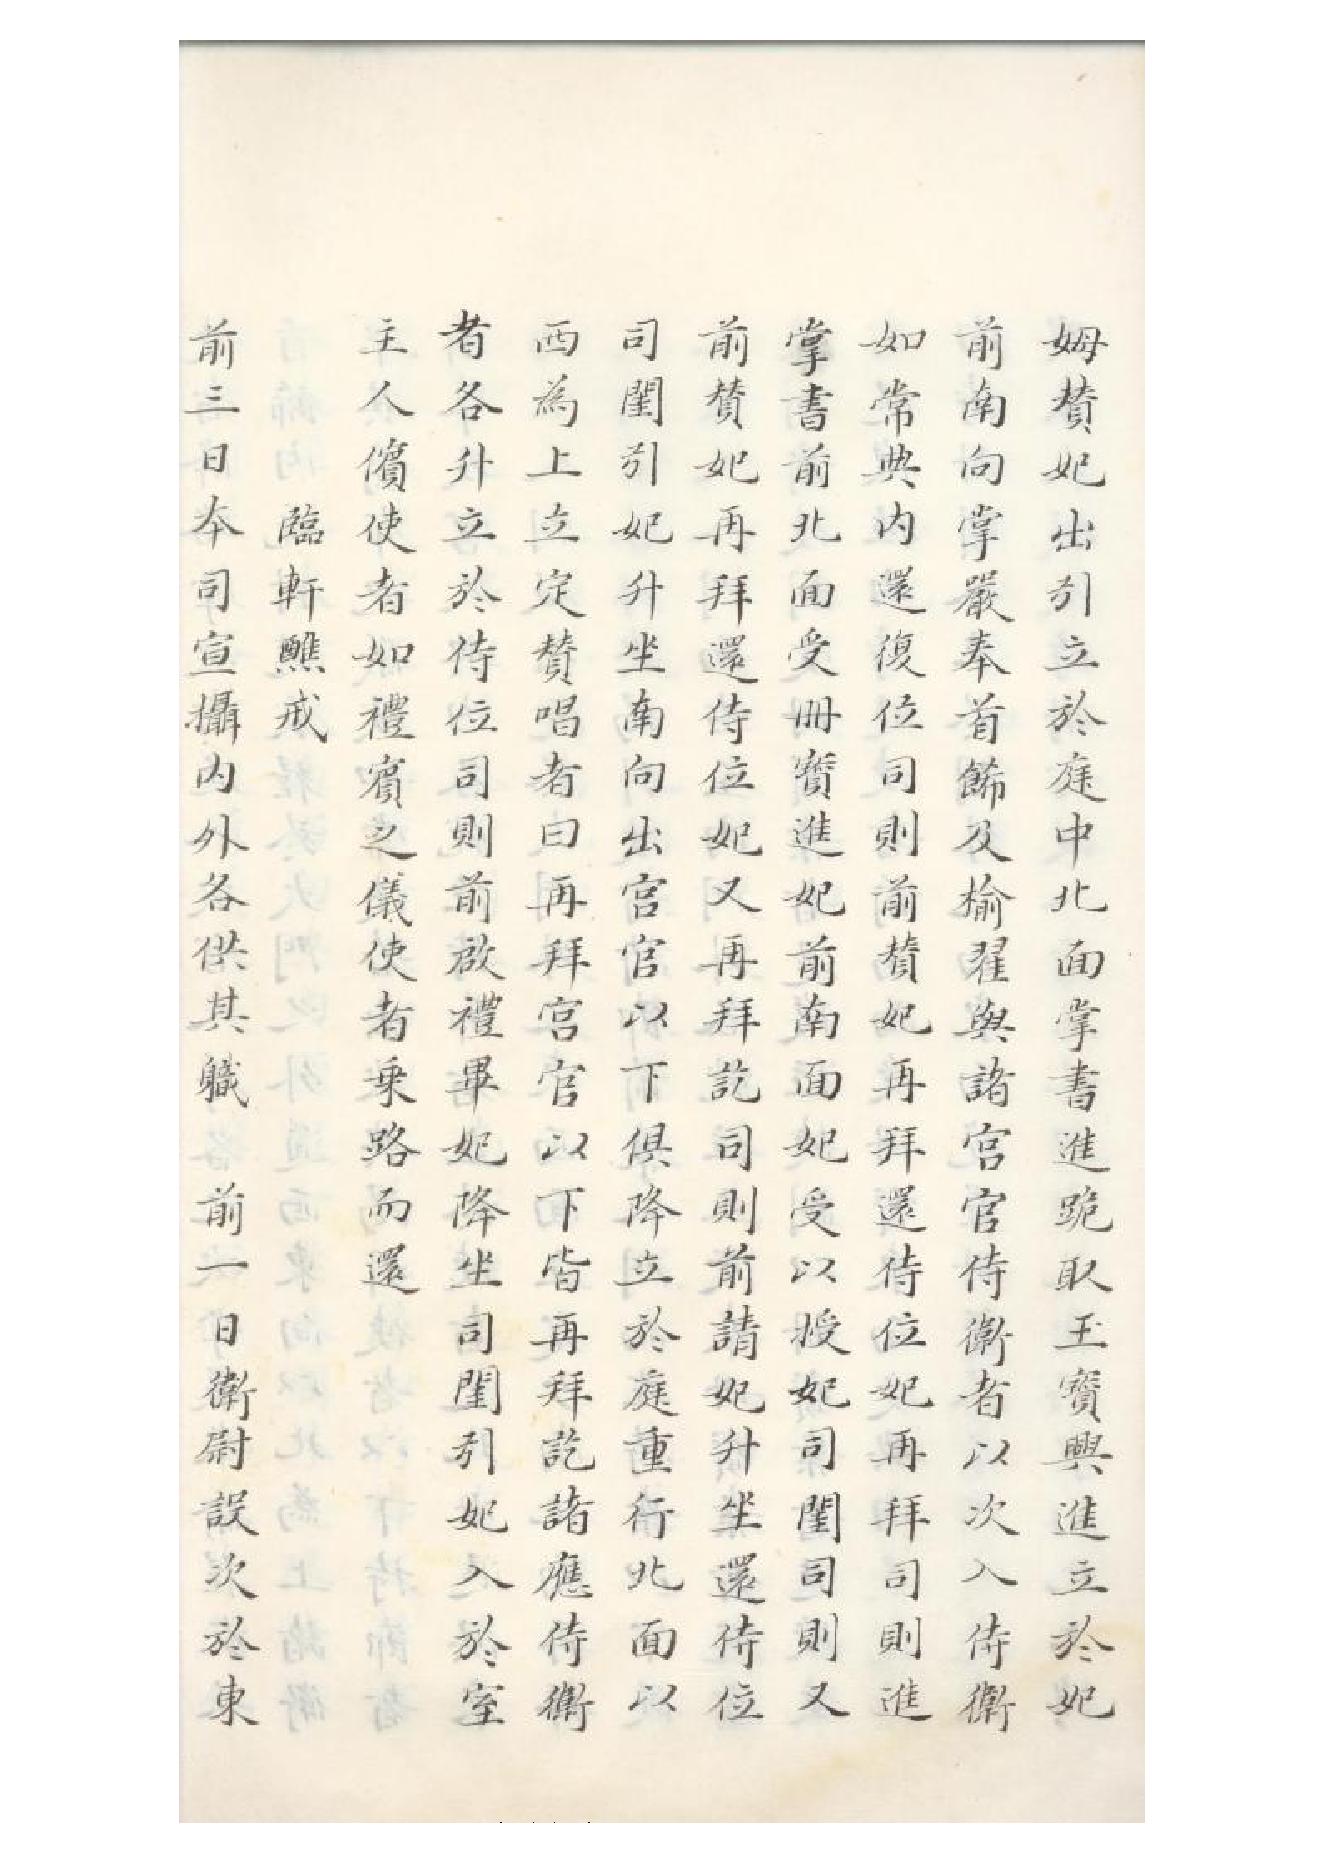 姆賛妃出引立於庭中北面掌書進跪取玉寳興進立於妃
前南向掌嚴奉首餙及褕翟與諸宫官侍衛者以次入侍衛
如常典内還復位司則前賛妃再拜還侍位妃再拜司則進
掌書前北面受冊寳進妃前南面妃受以授妃司閨司則又
前賛妃再拜還侍位妃又再拜訖司則前請妃升坐還侍位
司閨引妃升坐南向出宫官以下俱降立於庭重行北面以
西為上立定賛唱者曰再拜宫官以下皆再拜訖諸應侍衛
者各升立於侍位司則前啟禮畢妃降坐司閨引妃入於室
主人儐使者如禮賓之儀使者乗路而還
臨軒醮戒
前三日夲司宣攝内外各供其職 前一日衛尉設次於東